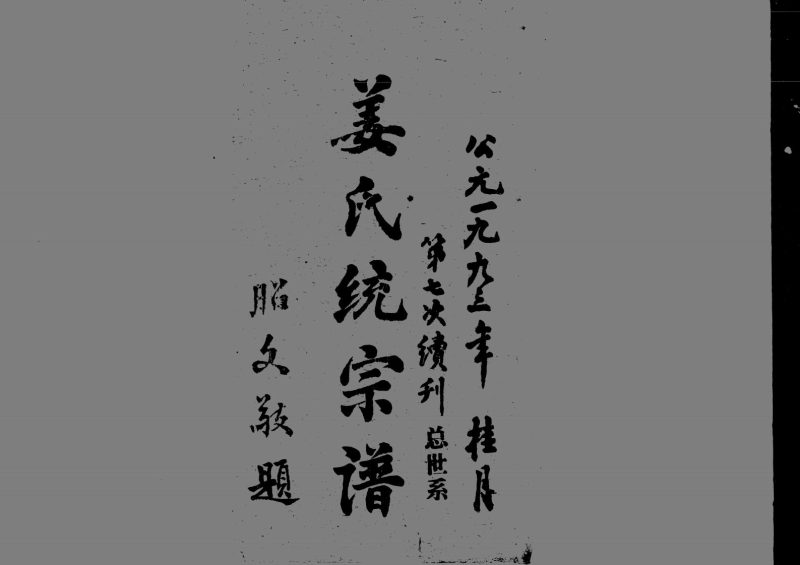 公元一九九三年 桂月
第七次續刊 总世系
姜氏统宗谱
文敬題